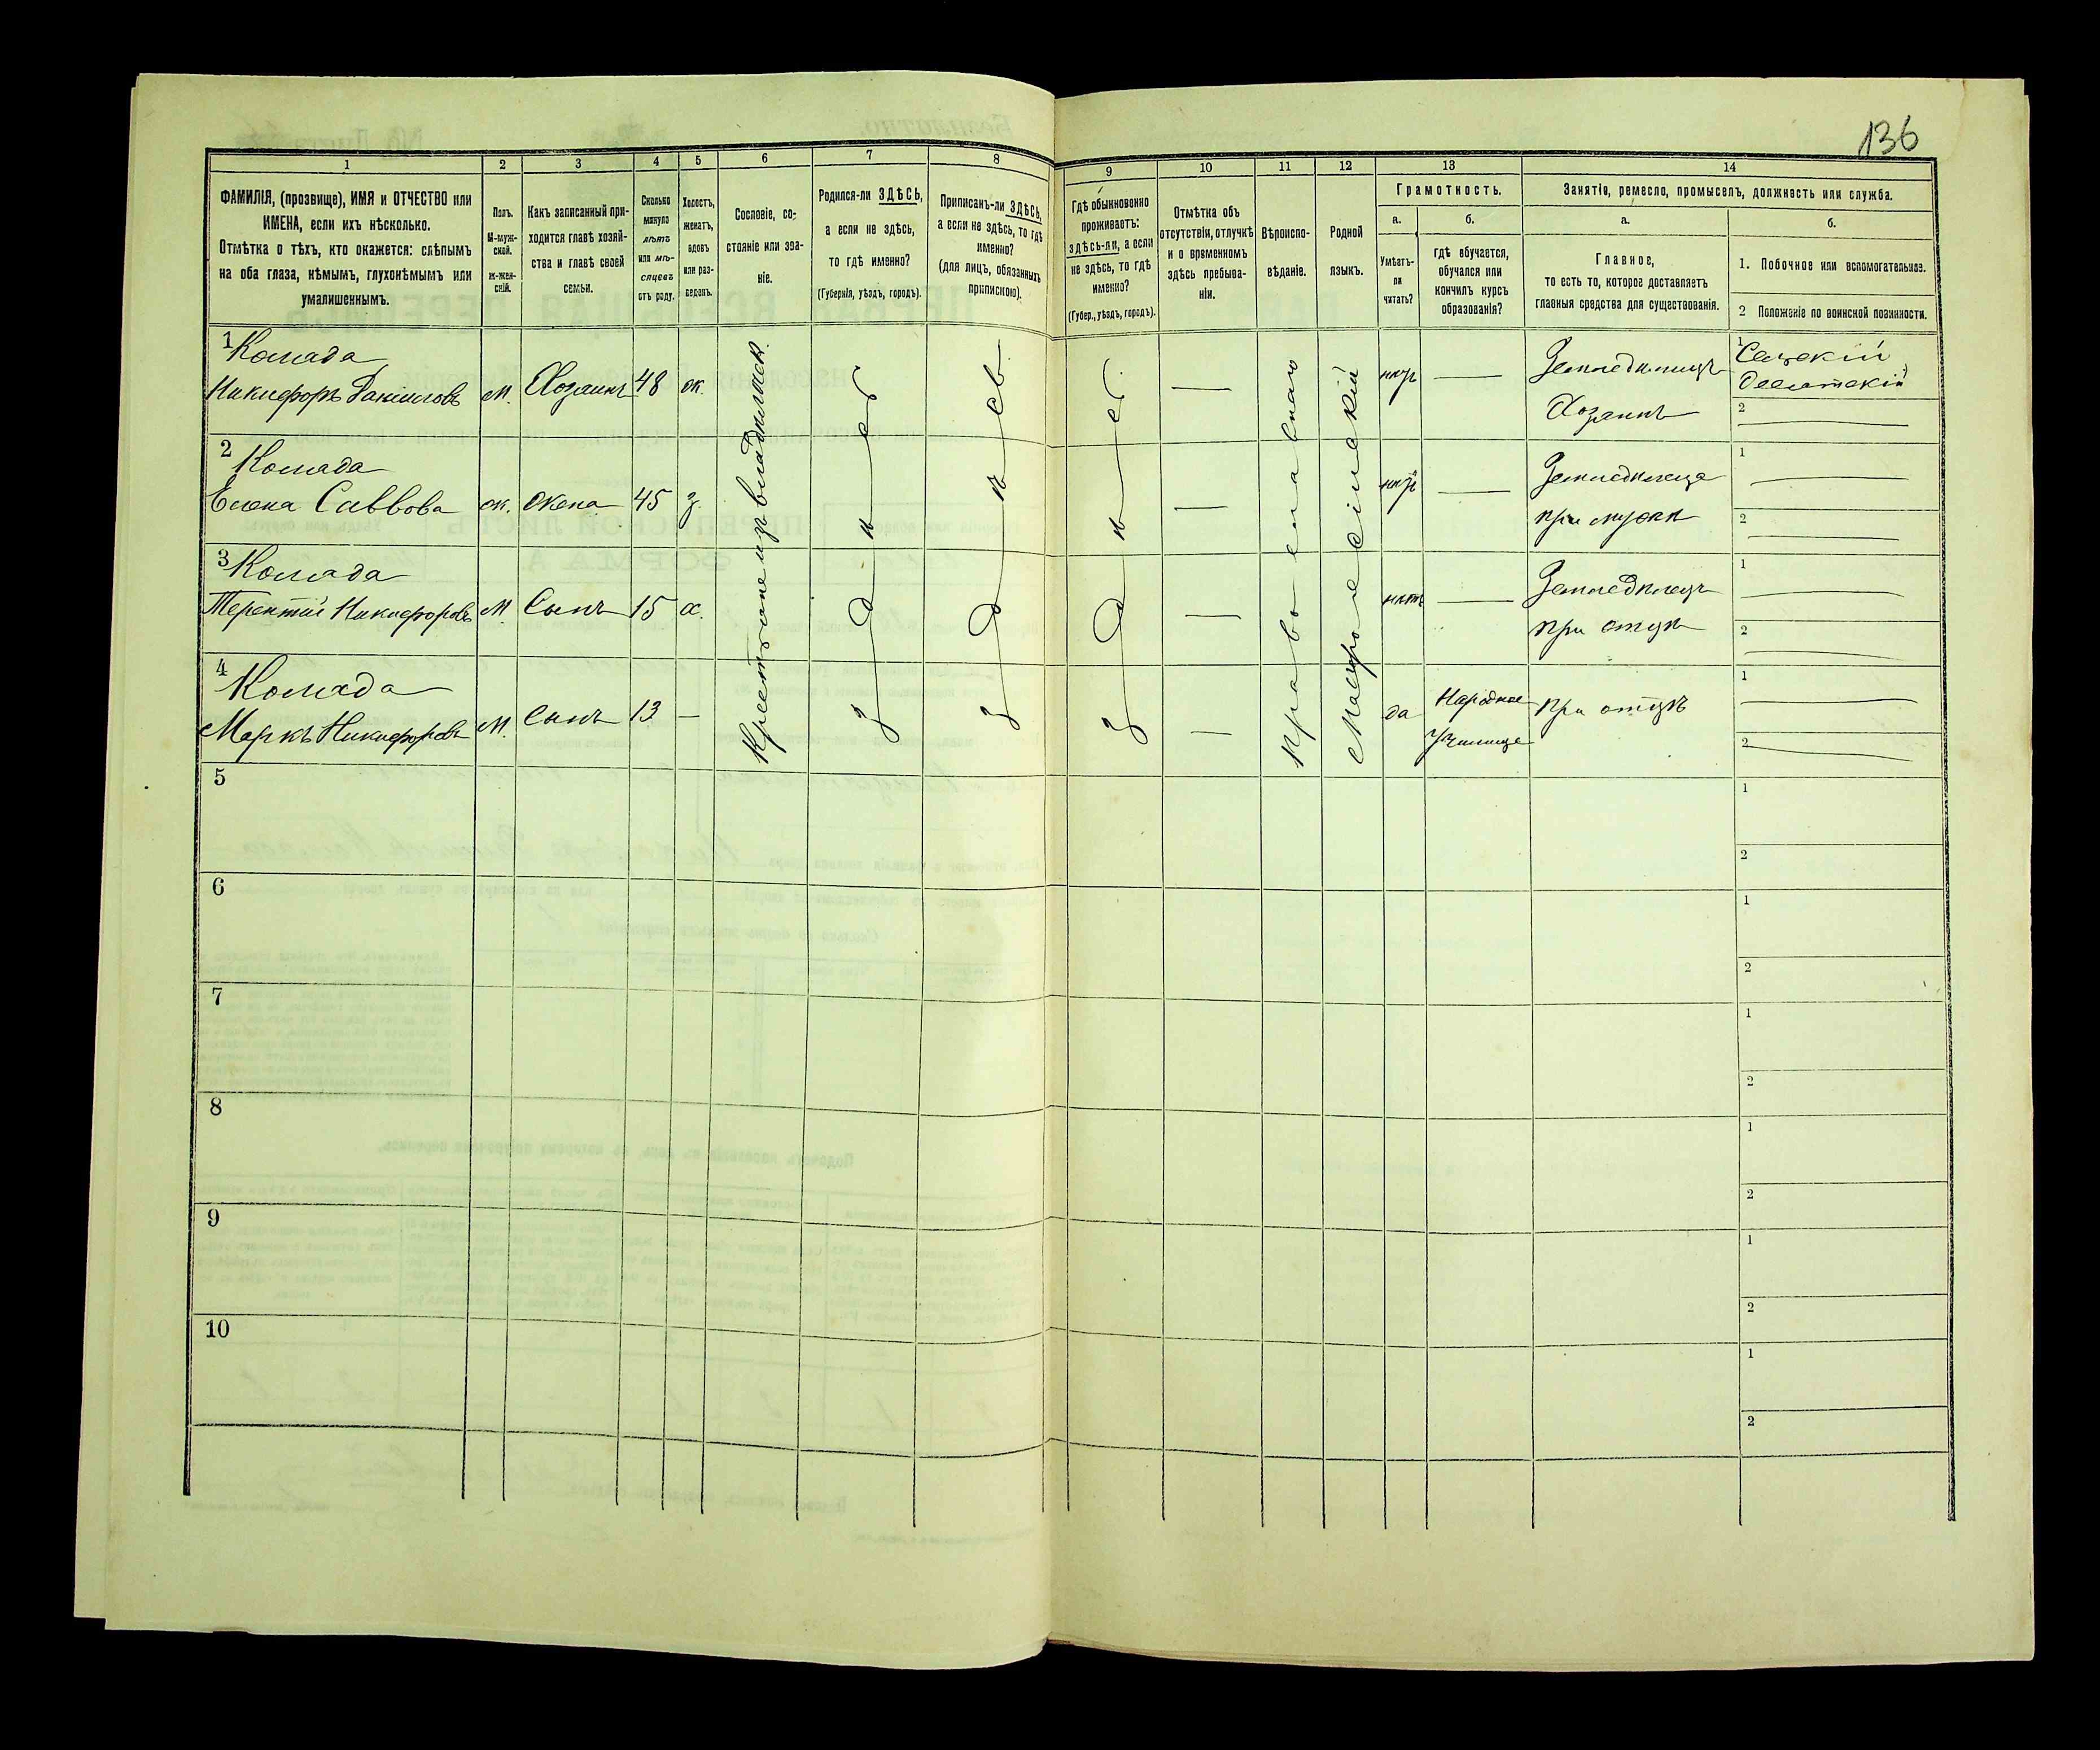 136
1
2
3
4
5
6
7
8
9
10
11
12
13
14
ФАМИЛІЯ, (прозвище), ИМЯ и ОТЧЕСТВО или
ИМЕНА, если ихъ нѣсколько.
Отмѣтка о тѣхъ, кто окажется: слѣпымъ
на оба глаза, нѣмымъ, глухонѣмымъ или
умалишеннымъ.
Полъ.
М-муж-
ской.
ж-жен-
скій.
Какъ записанный при-
ходится главѣ хозяй-
ства и главѣ своей
семьи.
Сколько
минуло
лѣтъ
или мѣ-
сяцевъ
отъ роду.
Холостъ,
женатъ,
вдовъ
или раз-
веденъ.
Сословіе, со-
стояніе или зва-
ніе.
Родился-ли ЗДѢСЬ,
а если не здѣсь,
то гдѣ именно?
(Губернія, уѣздъ, городъ).
Приписанъ-ли ЗДѢСЬ,
а если не здѣсь, то гдѣ
именно?
(для лицъ, обязанныхъ
припискою).
Гдѣ обыкновенно
проживаетъ:
здѣсь-ли, а если
не здѣсь, то гдѣ
именно?
(Губер., уѣздъ, городъ).
Отмѣтка объ
отсутствіи, отлучкѣ
и о временномъ
здѣсь пребыва-
ніи.
Вѣроиспо-
вѣданіе.
Родной
языкъ.
Грамотность.
а.
Умѣетъ-
ли
читать?
б.
гдѣ обучается,
обучался или
кончилъ курсъ
образованія?
Занятіе, ремесло, промыселъ, должность или служба.
а.
Главное,
то есть то, которое доставляетъ
главныя средства для существованія.
б.
1. Побочное или вспомогательное.
2 Положеніе по воинской повинности.
1 Комада
Никифоръ Даниловъ м. Хозяинъ 48 ж. нѣтъ Земледѣлецъ
Хозяинъ
1 Сельскій
десятскій
2
2 Комада
Елена Саввова ж. жена 45 з. нѣтъ Земледѣлица
при мужѣ
1
2
3 Комада
Терентій Никифоровъ м. Сынъ 15 х. нѣтъ Земледѣлецъ
при отцѣ
1
2
4 Комада
Маркъ Никифоровъ м. Сынъ 13 — да Народное
Училище
При отцѣ
1
2
Крестьяне изъ владѣльческ.
здѣсь
здѣсь
здѣсь
Православнаго
Малороссійскій
5
1
2
6
1
2
7
1
2
8
1
2
9
1
2
10
1
2